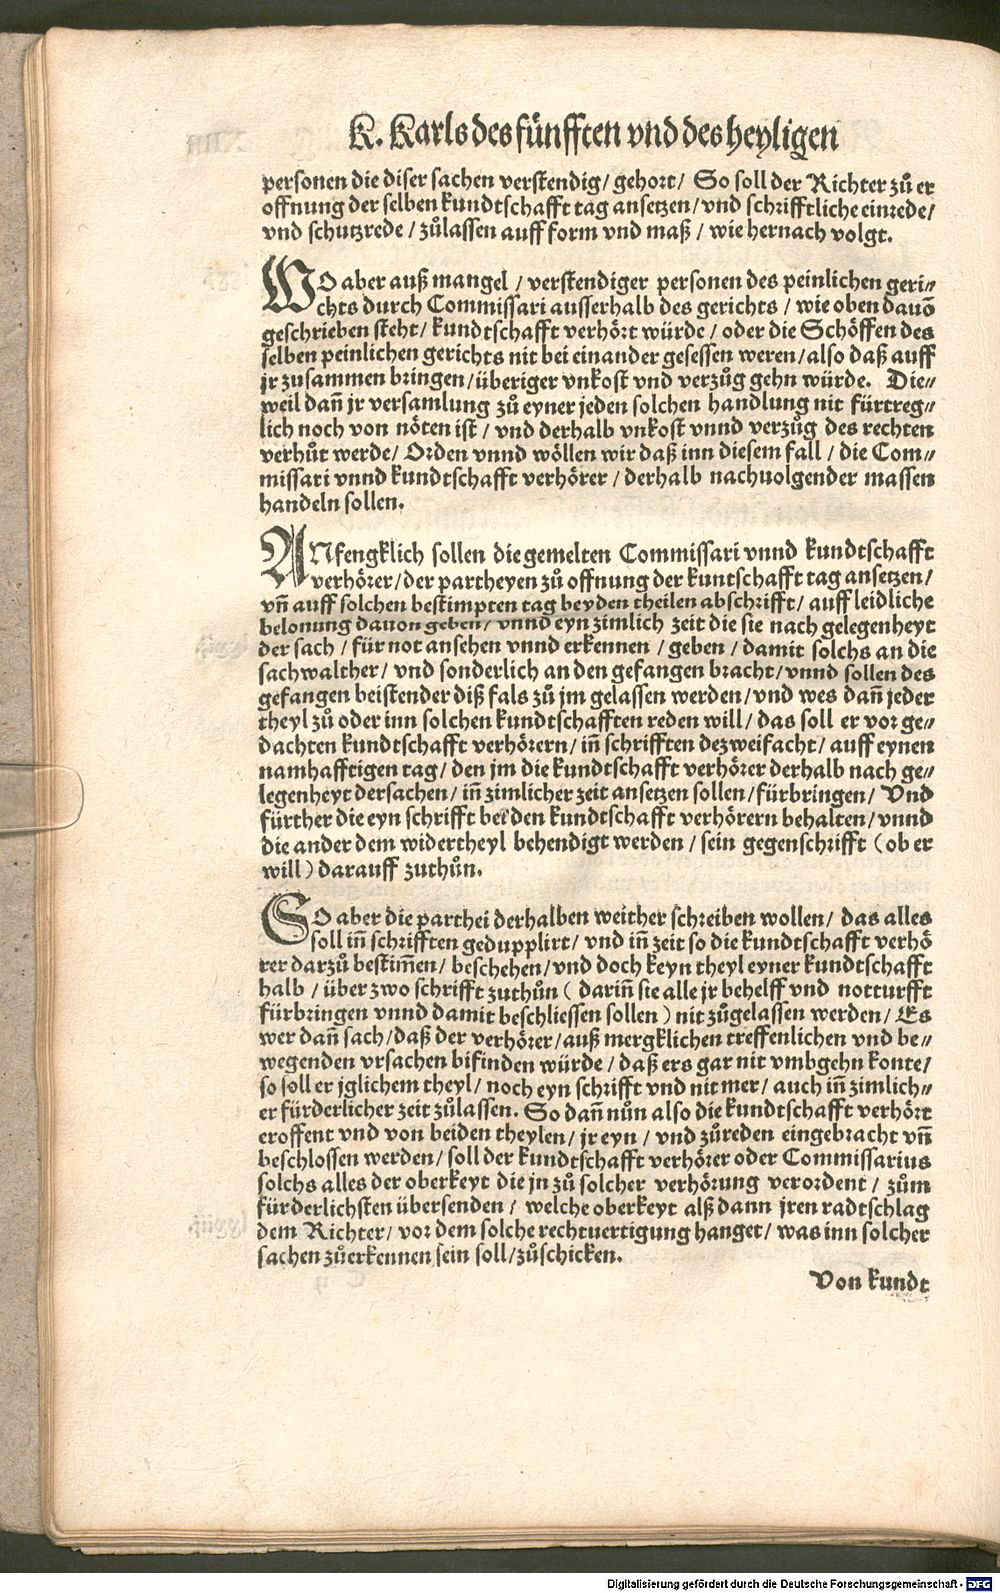 K. Karls des fünfften vnd des heyligen
personen die diser sachen verstendig/ gehort/ So soll der Richter zů er
offnung der selben kundtschafft tag ansetzen/ vnd schrifftliche einrede/
vnd schutzrede/ zůlassen auff form vnd maß/ wie hernach volgt.
WO aber auß mangel/ verstendiger personen des peinlichen geri⸗
chts durch Commissari ausserhalb des gerichts/ wie oben dauõ
geschrieben steht/ kundtschafft verhört würde/ oder die Schöffen des
selben peinlichen gerichts nit bei einander gesessen weren/ also daß auff
jr zusammen bringen/ überiger vnkost vnd verzůg gehn würde. Die⸗
weil dañ jr versamlung zů eyner jeden solchen handlung nit fürtreg⸗
lich noch von nöten ist/ vnd derhalb vnkost vnnd verzůg des rechten
verhůt werde/ Orden vnnd wöllen wir daß inn diesem fall/ die Com⸗
missari vnnd kundtschafft verhörer/ derhalb nachuolgender massen
handeln sollen.
ANfengklich sollen die gemelten Commissari vnnd kundtschafft
verhörer/ der partheyen zů offnung der kuntschafft tag ansetzen/
vñ auff solchen bestimpten tag beyden theilen abschrifft/ auff leidliche
belonung dauon geben/ vnnd eyn zimlich zeit die sie nach gelegenheyt
der sach/ für not ansehen vnnd erkennen/ geben/ damit solchs an die
sachwalther/ vnd sonderlich an den gefangen bracht/ vnnd sollen des
gefangen beistender diß fals zů jm gelassen werden/ vnd wes dañ jeder
theyl zů oder inn solchen kundtschafften reden will/ das soll er vor ge⸗
dachten kundtschafft verhörern/ iñ schrifften dezweifacht/ auff eynen
namhafftigen tag/ den jm die kundtschafft verhörer derhalb nach ge⸗
legenheyt der sachen/ iñ zimlicher zeit ansetzen sollen/ fürbringen/ Vnd
fürther die eyn schrifft bei den kundtschafft verhörern behalten/ vnnd
die ander dem widertheyl behendigt werden/ sein gegenschrifft (ob er
will) darauff zuthůn.
SO aber die parthei derhalben weither schreiben wollen/ das alles
soll iñ schrifften gedupplirt/ vnd iñ zeit so die kundtschafft verhö
rer darzů bestim̃en/ beschehen/ vnd doch keyn theyl eyner kundtschafft
halb/ über zwo schrifft zuthůn (dariñ sie alle jr behelff vnd notturfft
fürbringen vnnd damit beschliessen sollen) nit zůgelassen werden/ Es
wer dañ sach/ daß der verhörer/ auß mergklichen treffenlichen vnd be⸗
wegenden vrsachen bifinden würde/ daß ers gar nit vmbgehn konte/
so soll er jglichem theyl/ noch eyn schrifft vnd nit mer/ auch iñ zimlich⸗
er fürderlicher zeit zůlassen. So dañ nůn also die kundtschafft verhört
eroffent vnd von beiden theylen/ jr eyn/ vnd zůreden eingebracht vñ
beschlossen werden/ soll der kundtschafft verhörer oder Commissarius
solchs alles der oberkeyt die jn zů solcher verhörung verordent/ zům
fürderlichsten übersenden/ welche oberkeyt alß dann jren radtschlag
dem Richter/ vor dem solche rechtuertigung hanget/ was inn solcher
sachen zůerkennen sein soll/ zůschicken.
Von kundt
Digitalisierung gefördert durch die Deutsche Forschungsgemeinschaft - DFG